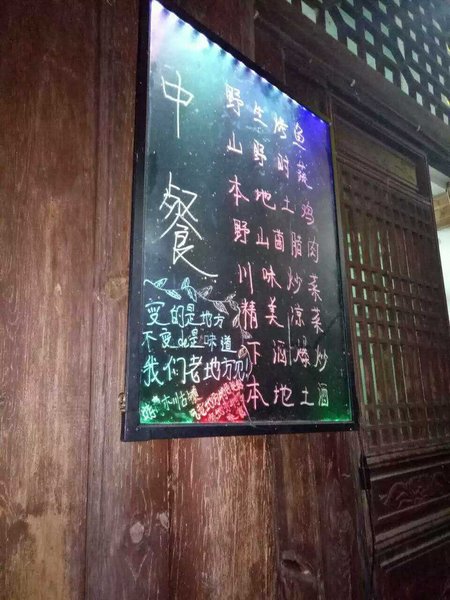 中餐
野生烤鱼
山野时蔬
本地土鸡
野山菌腊肉
川味炒菜
精美凉菜
下酒爆炒
本地土酒
变的是地方
不变de是味道
我们老地方见!